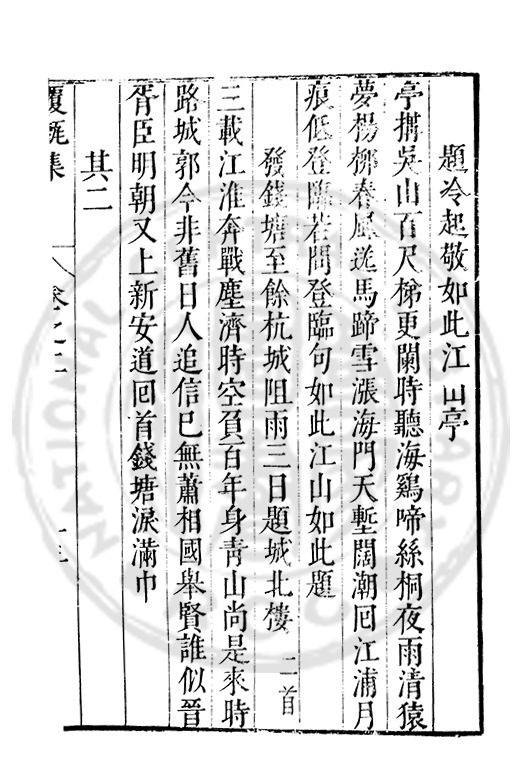 題冷起敬如此江山亭
亭搆吳山百尺梯更闌時聽海鷄啼絲桐夜雨清猿
夢楊柳春風送馬蹄雪漲海門天塹闊潮囘江浦月
痕低登臨若問登臨句如此江山如此題
發錢塘至餘杭城阻雨三日題城北樓 二首
三載江淮奔戰塵濟時空負百年身靑山尚是來時
路城郭今非舊日人追信已無蕭相國舉賢誰似晉
胥臣明朝又上新安道回首錢塘淚滿巾
其二
覆瓿集 卷之二